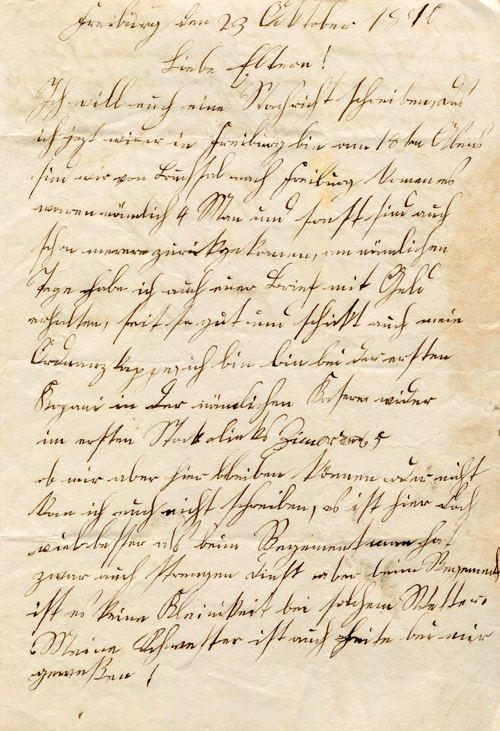 Freiburg den 23 Oktober 1818
Liebe Eltern!
Ich will euch eine Nachricht schreiben, das
ich jezt wieder in Freiburg bin am 18ten Abend
sind wir von Bruchsal nach Freiburg komen es
waren nämlich 4 Man und sonst sind auch
schon merere zurückgekomen, am nämlichen
Tage habe ich auch euer Brief mit Geld
erhalten, seit so gut und schickt auch mein
Ordonanzkappe, ich bin bin bei der ersten
Kopani in der nämlichen Kaserne wider
im ersten Stock links Zimer 5
ob wir aber hier bleiben können oder nicht
kan ich euch nicht schreiben, es ist hier doch
viel besser als beim Regement man hat
zwar auch strengen Dinst aber beim Regement
ist es keine Kleinikeit bei solchem Wetter.
Meine Schwester ist auch heite bei mir
geweßen!